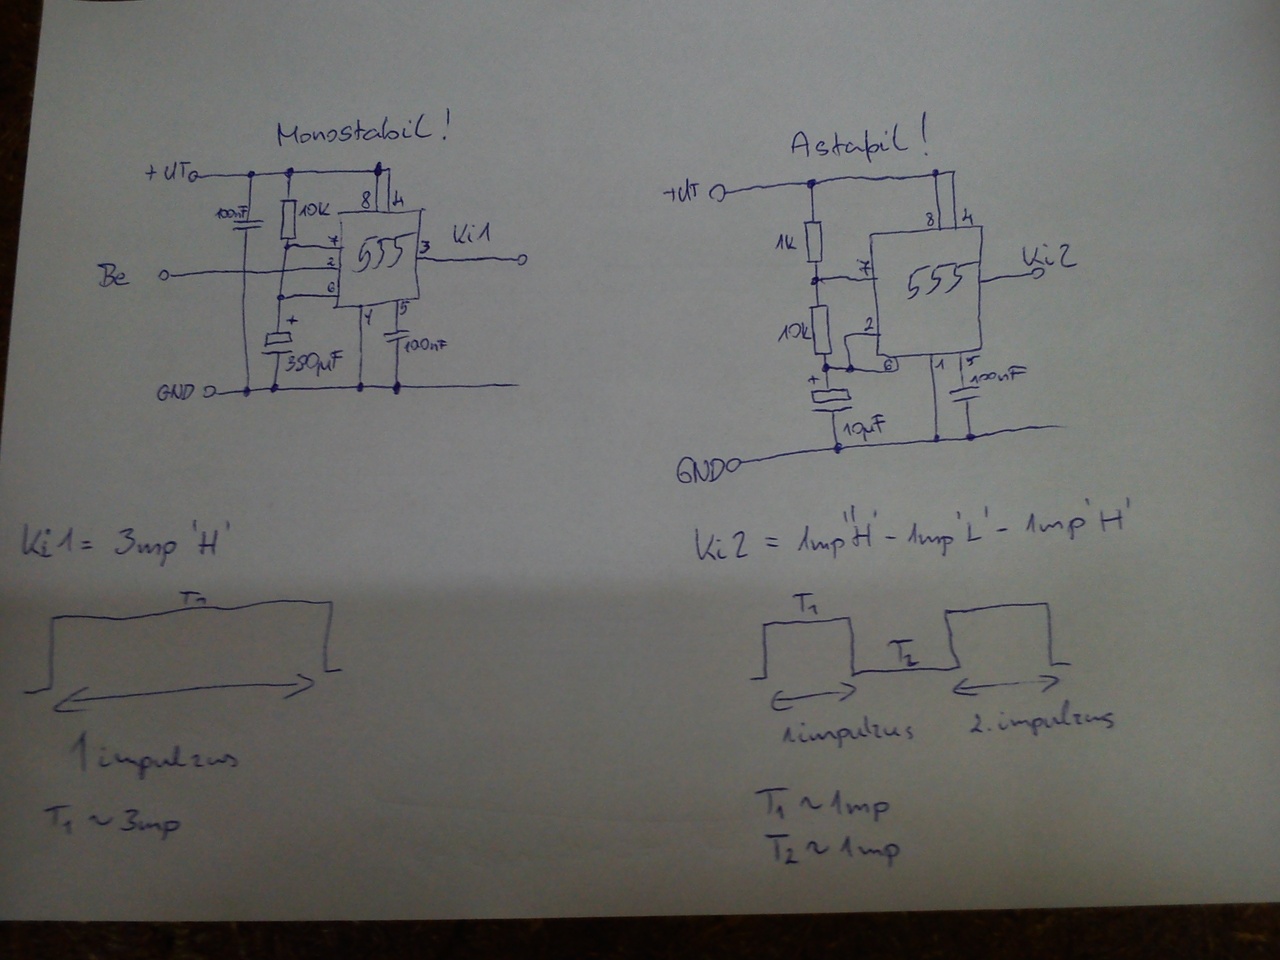 Monostabil!
+UT
100nF
10K
8
4
7
2
6
555
3
Ki1
Be
1
5
+
390µF
100nF
GND
Astabil!
+UT
1K
8
4
7
555
Ki2
10K
2
6
1
5
100nF
+
10µF
GND
Ki1 = 3mp 'H'
T1
1 impulzus
T1 ~ 3mp
Ki2 = 1mp 'H' - 1mp 'L' - 1mp 'H'
T1
T2
1 impulzus
2. impulzus
T1 ~ 1mp
T2 ~ 1mp